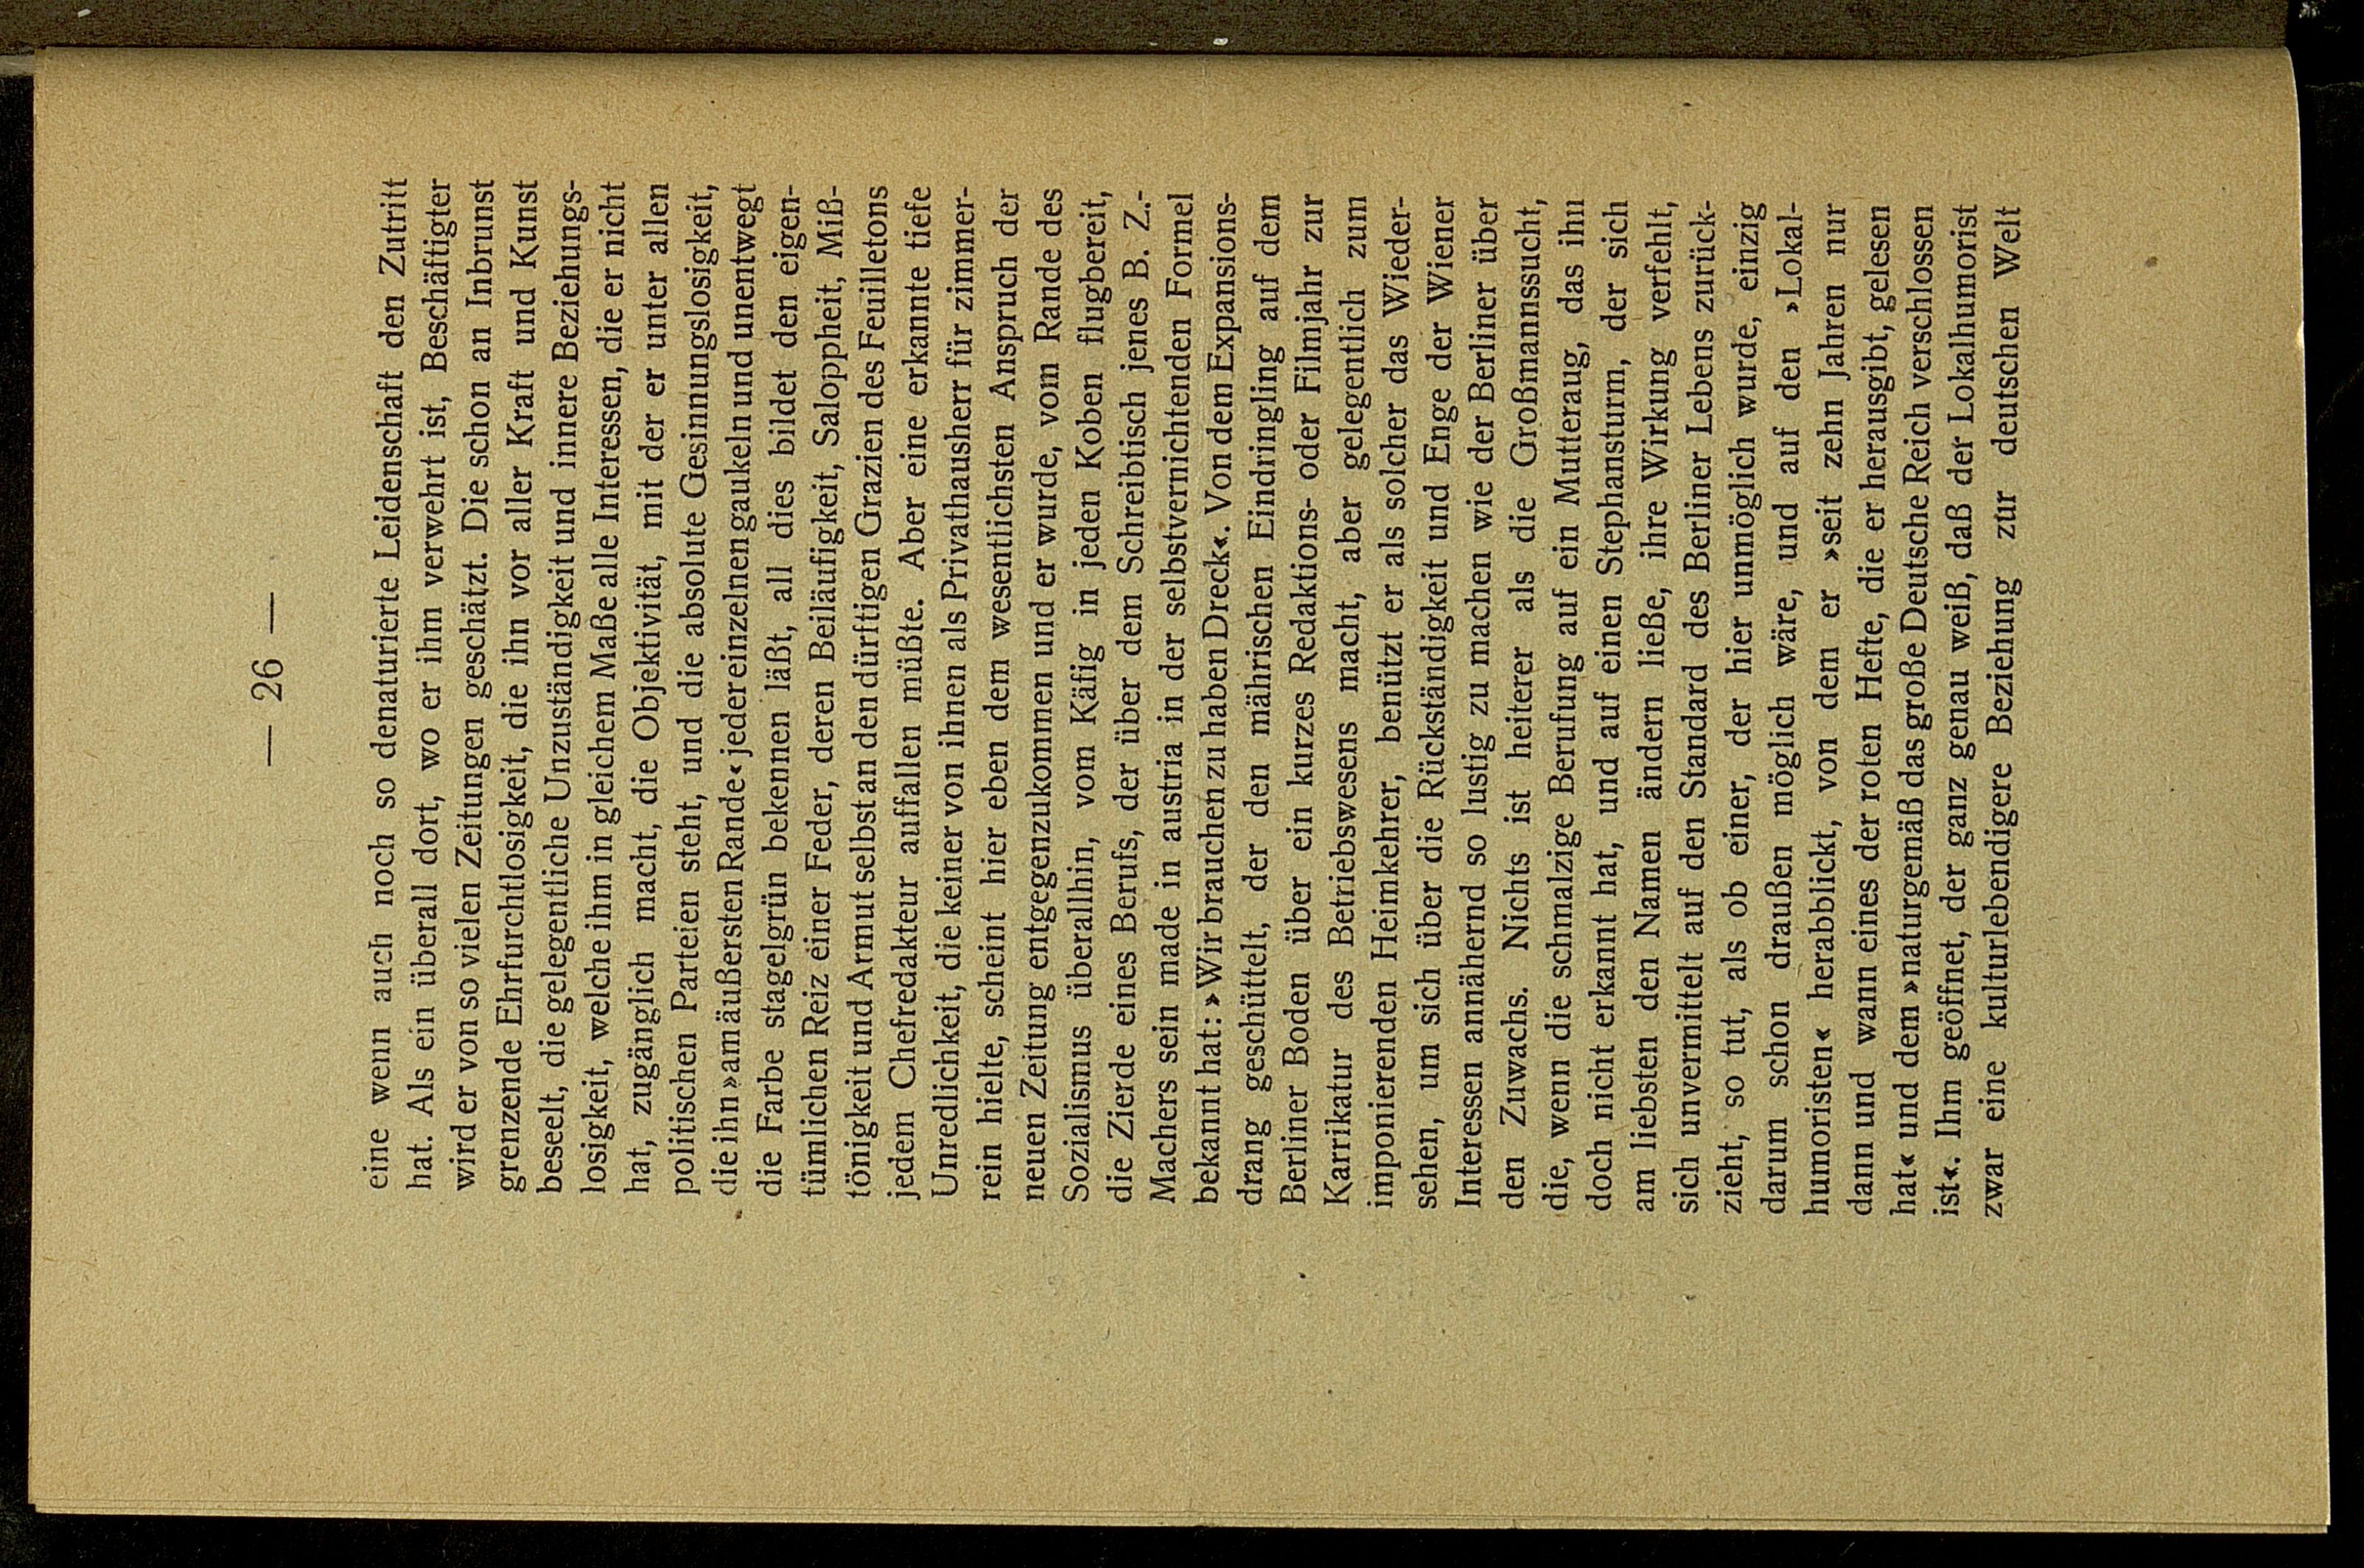 — 26 —
eine wenn auch noch so denaturierte Leidenschaft den Zutritt
hat. Als ein überall dort, wo er ihm verwehrt ist, Beschäftigter
wird er von so vielen Zeitungen geschätzt. Die schon an Inbrunst
grenzende Ehrfurchtlosigkeit, die ihn vor aller Kraft und Kunst
beseelt, die gelegentliche Unzuständigkeit und innere Beziehungs-
losigkeit, welche ihm in gleichem Maße alle Interessen, die er nicht
hat, zugänglich macht, die Objektivität, mit der er unter allen
politischen Parteien steht, und die absolute Gesinnungslosigkeit,
die ihn »am äußersten Rande« jeder einzelnen gaukeln und unentwegt
die Farbe stagelgrün bekennen läßt, all dies bildet den eigen-
tümlichen Reiz einer Feder, deren Beiläufigkeit, Saloppheit, Miß-
tönigkeit und Armut selbst an den dürftigen Grazien des Feuilletons
jedem Chefredakteur auffallen müßte. Aber eine erkannte tiefe
Unredlichkeit, die keiner von ihnen als Privathausherr für zimmer-
rein hielte, scheint hier eben dem wesentlichsten Anspruch der
neuen Zeitung entgegenzukommen und er wurde, vom Rande des
Sozialismus überallhin, vom Käfig in jeden Koben flugbereit,
die Zierde eines Berufs, der über dem Schreibtisch jenes B. Z.-
Machers sein made in austria in der selbstvernichtenden Formel
bekannt hat: »Wir brauchen zu haben Dreck«. Von dem Expansions-
drang geschüttelt, der den mährischen Eindringling auf dem
Berliner Boden über ein kurzes Redaktions- oder Filmjahr zur
Karrikatur des Betriebswesens macht, aber gelegentlich zum
imponierenden Heimkehrer, benützt er als solcher das Wieder-
sehen, um sich über die Rückständigkeit und Enge der Wiener
Interessen annähernd so lustig zu machen wie der Berliner über
den Zuwachs. Nichts ist heiterer als die Großmannssucht,
die, wenn die schmalzige Berufung auf ein Mutteraug, das ihn
doch nicht erkannt hat, und auf einen Stephansturm, der sich
am liebsten den Namen ändern ließe, ihre Wirkung verfehlt,
sich unvermittelt auf den Standard des Berliner Lebens zurück-
zieht, so tut, als ob einer, der hier unmöglich wurde, einzig
darum schon draußen möglich wäre, und auf den »Lokal-
humoristen« herabblickt, von dem er »seit zehn Jahren nur
dann und wann eines der roten Hefte, die er herausgibt, gelesen
hat« und dem »naturgemäß das große Deutsche Reich verschlossen
ist«. Ihm geöffnet, der ganz genau weiß, daß der Lokalhumorist
zwar eine kulturlebendigere Beziehung zur deutschen Welt